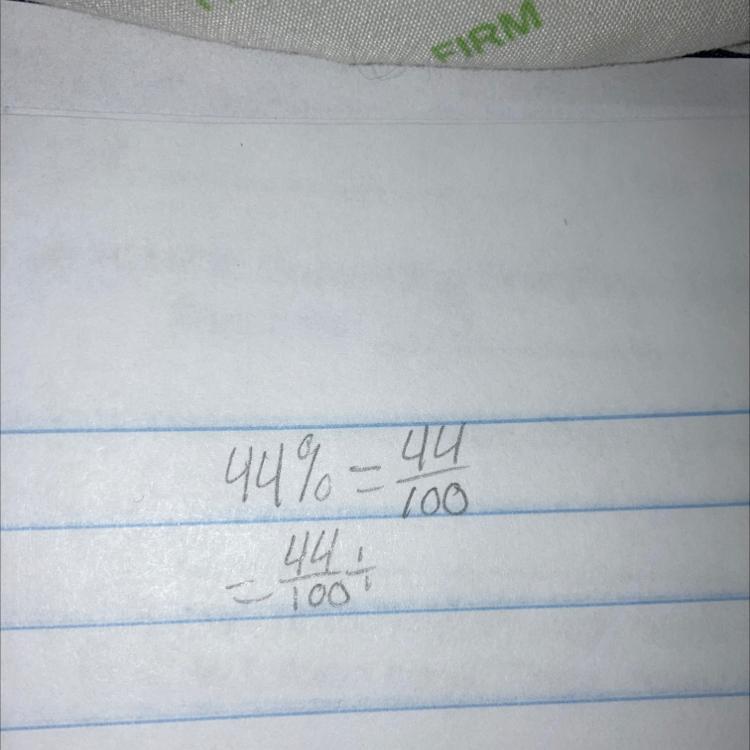 FIRM
44% = 44/100
= 44/100 ÷